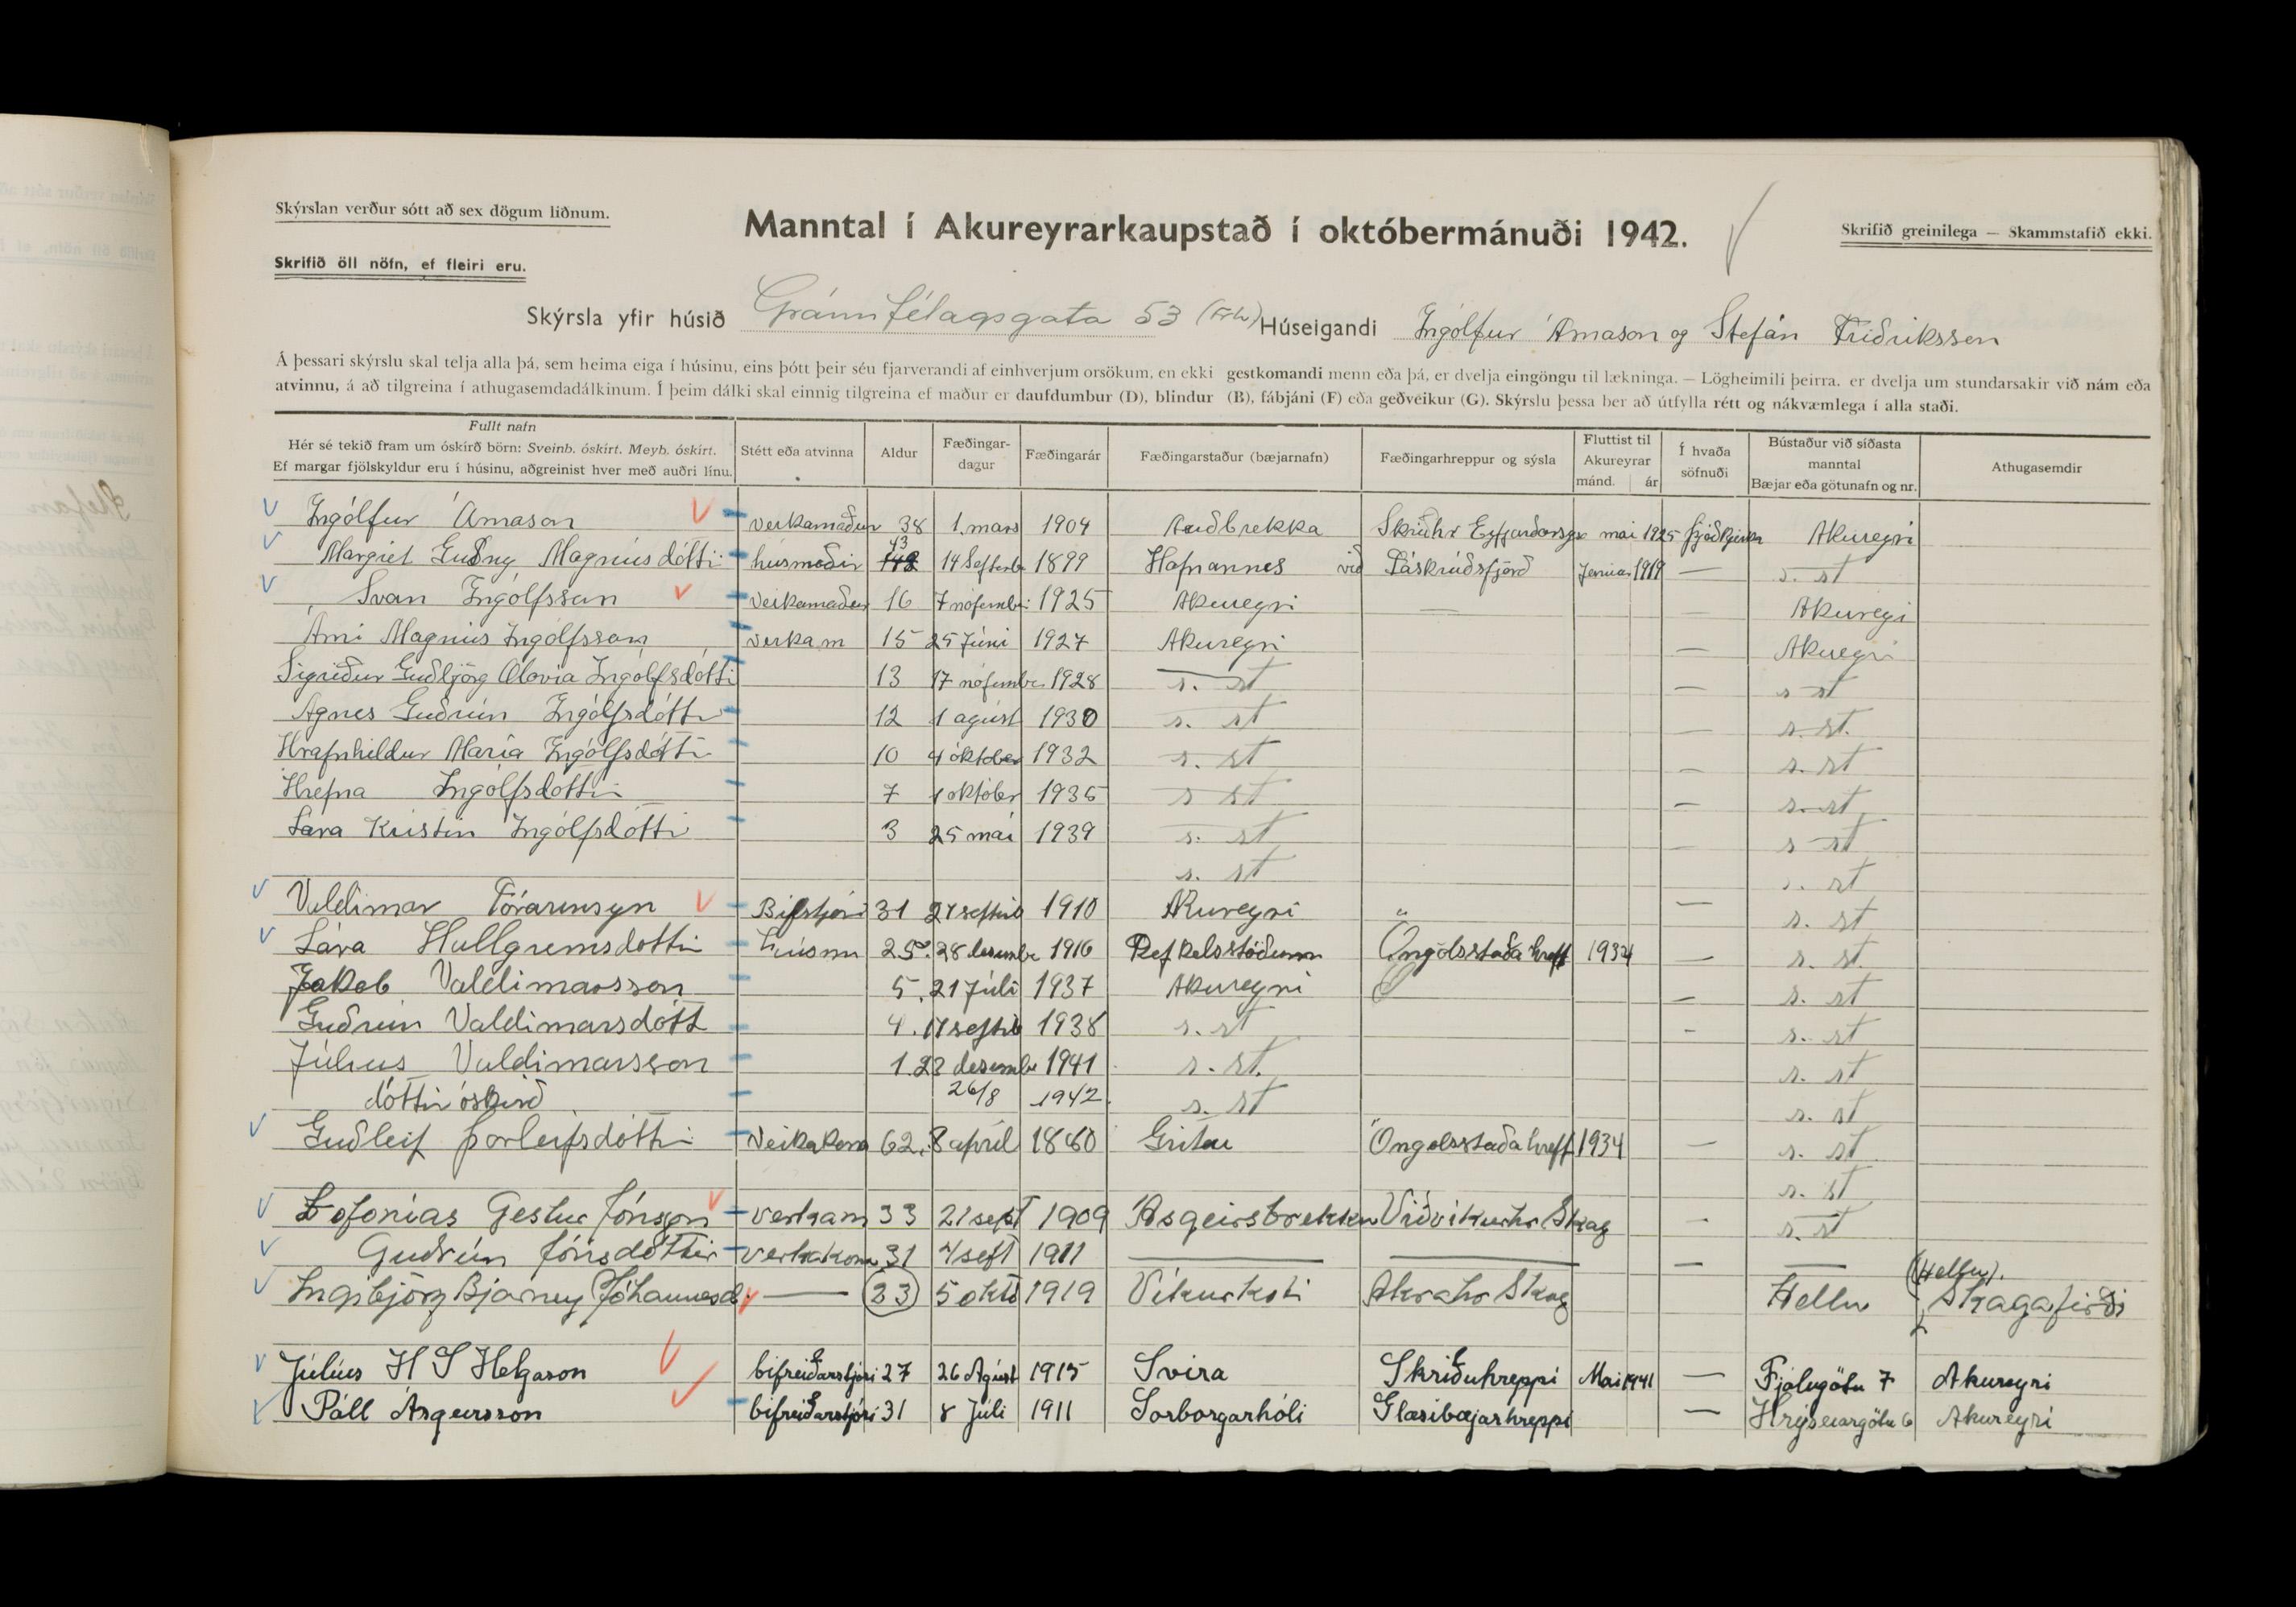 Skýrslan verður sótt að sex dögum liðnum.
Manntal í Akureyrarkaupstað í októbermánuði 1942.
Skrifið greinilega — Skammstafið ekki.
Skrifið öll nöfn, ef fleiri eru.
Skýrsla yfir húsið Gránufélagsgata 53 Húseigandi Ingólfur Árnason og Stefán Friðriksson
Á þessari skýrslu skal telja alla þá, sem heima eiga í húsinu, eins þótt þeir séu fjarverandi af einhverjum orsökum, en ekki gestkomandi menn eða þá, er dvelja eingöngu til lækninga. — Lögheimili þeirra, er dvelja um stundarsakir við nám eða
atvinnu, á að tilgreina í athugasemdadálkinum. Í þeim dálki skal einnig tilgreina ef maður er daufdumbur (D), blindur (B), fábjáni (F) eða geðveikur (G). Skýrslu þessa ber að útfylla rétt og nákvæmlega í alla staði.
Fullt nafn
Hér sé tekið fram um óskírð börn: Sveinb. óskírt. Meyb. óskírt.
Ef margar fjölskyldur eru í húsinu, aðgreinist hver með auðri línu.
Stétt eða atvinna
Aldur
Fæðingar-
dagur
Fæðingarár
Fæðingarstaður (bæjarnafn)
Fæðingarhreppur og sýsla
Fluttist til
Akureyrar
mánd. ár
Í hvaða
söfnuði
Bústaður við síðasta
manntal
Bæjar eða götunafn og nr.
Athugasemdir
Ingólfur Árnason verkamaður 38 1. mars 1904 Auðbrekka Skriðhr mai 1925 Akureyri
Margrét Guðny Magnúsdóttir húsmóðir 43 14 Septemb 1899 Hafnannes við Fáskrúðsfjörð Januar 1919 — s. st
Svan Ingólfsson Verkamaður 16 7 nófemb. 1925 Akureyri — Akureyi
Árni Magnús Ingólfsson verkam 15 25 Júni 1927 Akureyri — Akureyri
Sigriður Guðbjörg Ólovia Ingólfsdótti 13 17 nófembe 1928 s. st — s st
Agnes Guðrún Ingólfsdótti 12 1 agúst 1930 s. st — s. st.
Hrafnhildur María Ingólfsdótti 10 4 oktober 1932 s. st — s. st
Hrefna Ingólfsdóttir 7 1 október 1935 s st — s. st
Lára Kristín Ingólfsdótti 3 25 mai 1939 s. st — s st
s. st s. st
Valdimar Tórarensyn Bifstjóri 31 27 septeb 1910 Akureyri " — s. st
Lára Hallgremsdottir húsm 25. 28 desembe 1916 Öngólsstaða hrepp 1934 — s. st.
Jakob Valdimarsson 5. 21 Júli 1937 Akureyri — s. st
Guðrún Valdimarsdótt 4. 17 septeb 1938 s. st - s. st
Július Valdimarsson 1. 23 desembe 1941 s. st. s. st
dóttir óskirð 26/8 1942 s. st s. st
Guðleif Þorleifsdóttir Verkakona 62. 8 apríl 1880 Öngolsstaða hrepp 1934 — s. st
s. st
Zofonías Gestur Jónsson verkam 33 21 sept 1909 Ásgeirsbrekku Viðvikurhr Skag — s. st
Guðrún Jónsdóttir verkakona 31 4 sept 1911 — — — —
Ingibjörg Bjarney Jóhannesd. — 23 5 okto 1919 Víkurkoti Akrahr Skag Hellu (Hellu). Skagafirði
Július H S Helgason bifreiðarstjóri 27 26 Ágúst 1915 Svíra Skriðuhreppi Mai 1941 — Fjólugötu 7 Akureyri
Páll Ásgeirsson bifreiðarstjóri 31 8 Júli 1911 Lorborgarhóli Glæsibæjarhreppi — Hríseyjargötu 6 Akureyri